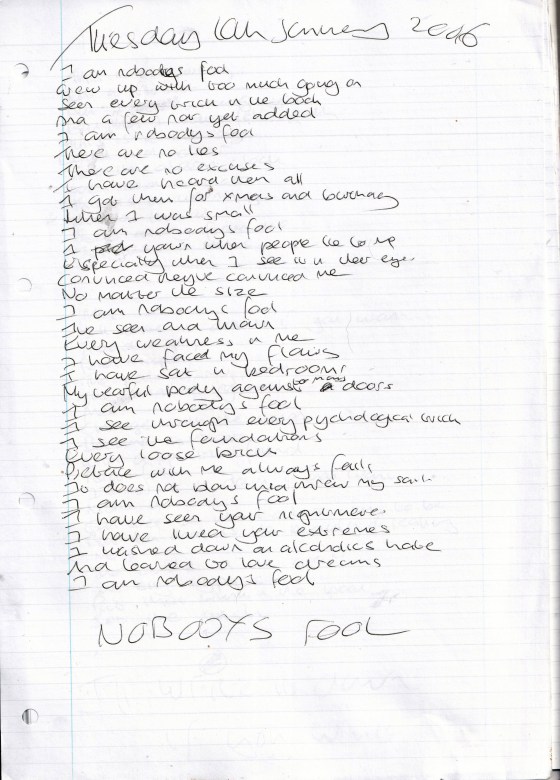 Tuesday January 2006
I am nobodys fool
Grew up with too much going on
Seen every trick in the book
And a few not yet added
I am nobodys fool
There are no lies
There are no excuses
I have heard them all
I got them for xmas and birthday
When I was small
I am nobodys fool
I yawn when people lie to me
Especially when I see in their eyes
Convinced theyve convinced me
No matter the size
I am nobodys fool
Ive seen and known
Every weakness in me
I have faced my flaws
I have sat in bedrooms
My fearful body against so many doors
I am nobodys fool
I see through every pychological trick
I see the foundations
Every loose brick
with me always fails
So does not blow wind my sails
I am nobodys fool
I have seen your nightmares
I have lived your extremes
I washed down an alcoholics hate
And learned to love dreams
I am nobody's fool
NOBODYS FOOL